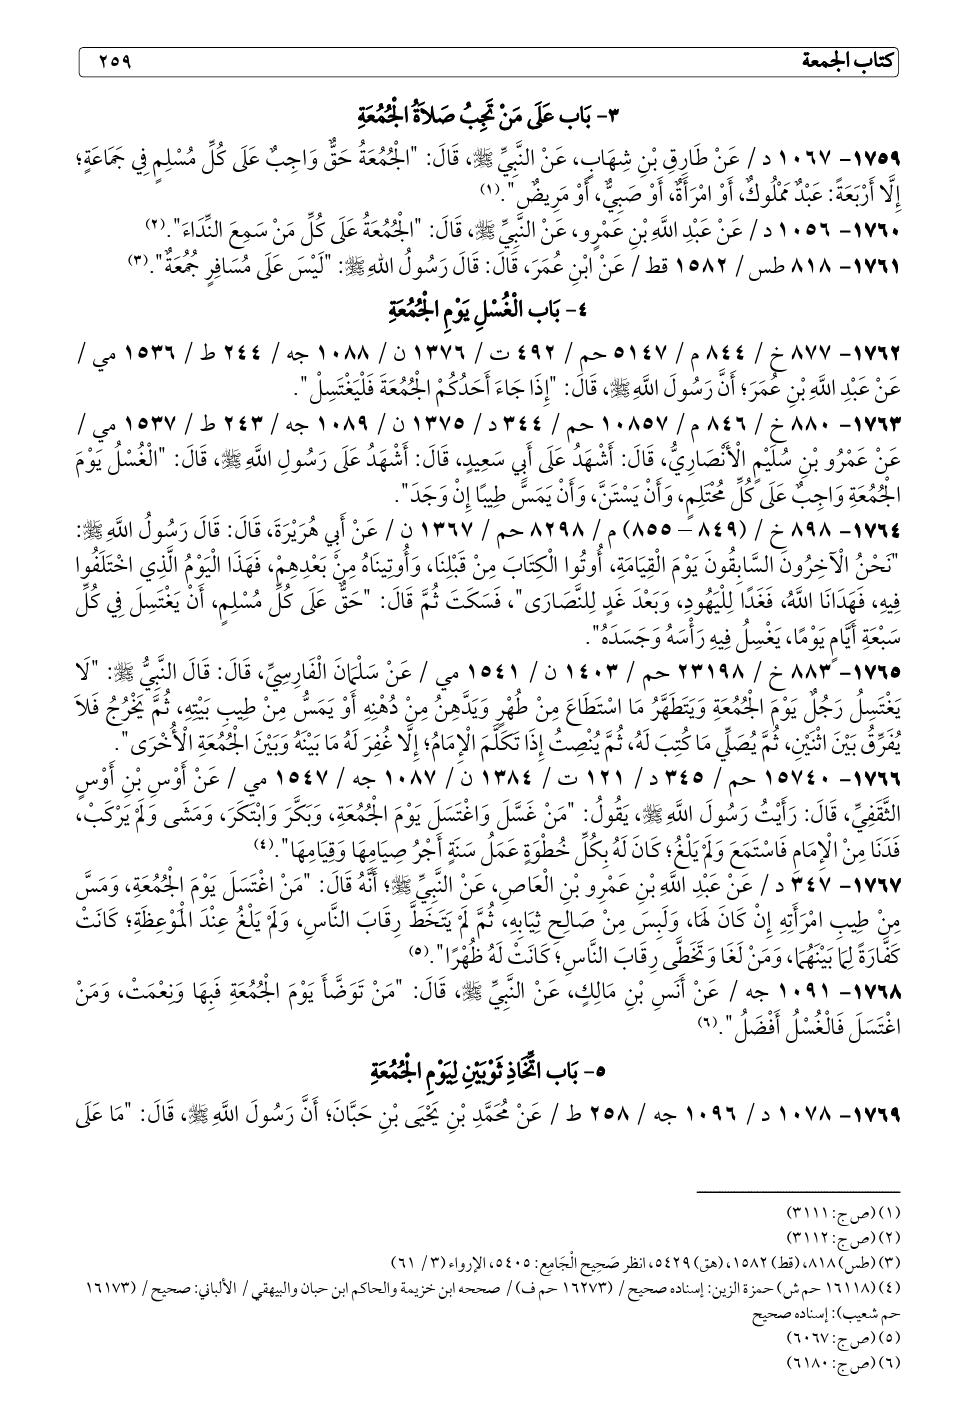 كتاب الجمعة ٢٥٩
٣- بَاب عَلَى مَنْ تَجِبُ صَلاَةُ الْجُمُعَةِ
١٧٥٩- ١٠٦٧ د/ عَنْ طَارِقِ بْنِ شِهَابٍ، عَنْ النَّبِيِّ ﷺ، قَالَ: "الْجُمُعَةُ حَقٌّ وَاجِبٌ عَلَى كُلِّ مُسْلِمٍ فِي جَمَاعَةٍ؛
إِلَّا أَرْبَعَةً: عَبْدٌ مَمْلُوكٌ، أَوْ امْرَأَةٌ، أَوْ صَبِيٌّ، أَوْ مَرِيضٌ".(١)
١٧٦٠- ١٠٥٦ د/ عَنْ عَبْدِ اللَّهِ بْنِ عَمْرٍو، عَنْ النَّبِيِّ ﷺ، قَالَ: "الْجُمُعَةُ عَلَى كُلِّ مَنْ سَمِعَ النِّدَاءَ".(٢)
١٧٦١- ٨١٨ طس/ ١٥٨٢ قط/ عَنْ ابْنِ عُمَرَ، قَالَ: قَالَ رَسُولُ اللهِ ﷺ: "لَيْسَ عَلَى مُسَافِرٍ جُمُعَةٌ".(٣)
٤- بَاب الْغُسْلِ يَوْمِ الْجُمُعَةِ
١٧٦٢- ٨٧٧ خ/ ٨٤٤ م/ ٥١٤٧ حم/ ٤٩٢ ت/ ١٣٧٦ ن/ ١٠٨٨ جه/ ٢٤٤ ط/ ١٥٣٦ مي/
عَنْ عَبْدِ اللَّهِ بْنِ عُمَرَ؛ أَنَّ رَسُولَ اللَّهِ ﷺ، قَالَ: "إِذَا جَاءَ أَحَدُكُمْ الْجُمُعَةَ فَلْيَغْتَسِلْ".
١٧٦٣- ٨٨٠ خ/ ٨٤٦ م/ ١٠٨٥٧ حم/ ٣٤٤ د/ ١٣٧٥ ن/ ١٠٨٩ جه/ ٢٤٣ ط/ ١٥٣٧ مي/
عَنْ عَمْرُو بْنِ سُلَيْمٍ الْأَنْصَارِيُّ، قَالَ: أَشْهَدُ عَلَى أَبِي سَعِيدٍ، قَالَ: أَشْهَدُ عَلَى رَسُولِ اللَّهِ ﷺ، قَالَ: "الْغُسْلُ يَوْمَ
الْجُمُعَةِ وَاجِبٌ عَلَى كُلِّ مُحْتَلِمٍ، وَأَنْ يَسْتَنَّ، وَأَنْ يَمَسَّ طِيبًا إِنْ وَجَدَ".
١٧٦٤- ٨٩٨ خ/ (٨٤٩ – ٨٥٥) م/ ٨٢٩٨ حم/ ١٣٦٧ ن/ عَنْ أَبِي هُرَيْرَةَ، قَالَ: قَالَ رَسُولُ اللَّهِ ﷺ:
"نَحْنُ الْآخِرُونَ السَّابِقُونَ يَوْمَ الْقِيَامَةِ، أُوتُوا الْكِتَابَ مِنْ قَبْلِنَا، وَأُوتِينَاهُ مِنْ بَعْدِهِمْ، فَهَذَا الْيَوْمُ الَّذِي اخْتَلَفُوا
فِيهِ، فَهَدَانَا اللَّهُ، فَغَدًا لِلْيَهُودِ، وَبَعْدَ غَدٍ لِلنَّصَارَى"، فَسَكَتَ ثُمَّ قَالَ: "حَقٌّ عَلَى كُلِّ مُسْلِمٍ، أَنْ يَغْتَسِلَ فِي كُلِّ
سَبْعَةِ أَيَّامٍ يَوْمًا، يَغْسِلُ فِيهِ رَأْسَهُ وَجَسَدَهُ".
١٧٦٥- ٨٨٣ خ/ ٢٣١٩٨ حم/ ١٤٠٣ ن/ ١٥٤١ مي/ عَنْ سَلْمَانَ الْفَارِسِيِّ، قَالَ: قَالَ النَّبِيُّ ﷺ: "لَا
يَغْتَسِلُ رَجُلٌ يَوْمَ الْجُمُعَةِ وَيَتَطَهَّرُ مَا اسْتَطَاعَ مِنْ طُهْرٍ وَيَدَّهِنُ مِنْ دُهْنِهِ أَوْ يَمَسُّ مِنْ طِيبِ بَيْتِهِ، ثُمَّ يَخْرُجُ فَلاَ
يُفَرِّقُ بَيْنَ اثْنَيْنِ، ثُمَّ يُصَلِّي مَا كُتِبَ لَهُ، ثُمَّ يُنْصِتُ إِذَا تَكَلَّمَ الْإِمَامُ؛ إِلَّا غُفِرَ لَهُ مَا بَيْنَهُ وَبَيْنَ الْجُمُعَةِ الْأُخْرَى".
١٧٦٦- ١٥٧٤٠ حم/ ٣٤٥ د/ ١٢١ ت/ ١٣٨٤ ن/ ١٠٨٧ جه/ ١٥٤٧ مي/ عَنْ أَوْسِ بْنِ أَوْسٍ
الثَّقَفِيِّ، قَالَ: رَأَيْتُ رَسُولَ اللَّهِ ﷺ، يَقُولُ: "مَنْ غَسَّلَ وَاغْتَسَلَ يَوْمَ الْجُمُعَةِ، وَبَكَّرَ وَابْتَكَرَ، وَمَشَى وَلَمْ يَرْكَبْ،
فَدَنَا مِنْ الْإِمَامِ فَاسْتَمَعَ وَلَمْ يَلْغُ؛ كَانَ لَهُ بِكُلِّ خُطْوَةٍ عَمَلُ سَنَةٍ أَجْرُ صِيَامِهَا وَقِيَامِهَا".(٤)
١٧٦٧- ٣٤٧ د/ عَنْ عَبْدِ اللَّهِ بْنِ عَمْرِو بْنِ الْعَاصِ، عَنْ النَّبِيِّ ﷺ؛ أَنَّهُ قَالَ: "مَنْ اغْتَسَلَ يَوْمَ الْجُمُعَةِ، وَمَسَّ
مِنْ طِيبِ امْرَأَتِهِ إِنْ كَانَ لَهَا، وَلَبِسَ مِنْ صَالِحِ ثِيَابِهِ، ثُمَّ لَمْ يَتَخَطَّ رِقَابَ النَّاسِ، وَلَمْ يَلْغُ عِنْدَ الْمَوْعِظَةِ؛ كَانَتْ
كَفَّارَةً لِمَا بَيْنَهُمَا، وَمَنْ لَغَا وَتَخَطَّى رِقَابَ النَّاسِ؛ كَانَتْ لَهُ ظُهْرًا".(٥)
١٧٦٨- ١٠٩١ جه/ عَنْ أَنَسِ بْنِ مَالِكٍ، عَنْ النَّبِيِّ ﷺ، قَالَ: "مَنْ تَوَضَّأَ يَوْمَ الْجُمُعَةِ فَبِهَا وَنِعْمَتْ، وَمَنْ
اغْتَسَلَ فَالْغُسْلُ أَفْضَلُ".(٦)
٥- بَاب اتِّخَاذِ ثَوْبَيْنِ لِيَوْمِ الْجُمُعَةِ
١٧٦٩- ١٠٧٨ د/ ١٠٩٦ جه/ ٢٥٨ ط/ عَنْ مُحَمَّدِ بْنِ يَحْيَى بْنِ حَبَّانَ؛ أَنَّ رَسُولَ اللَّهِ ﷺ، قَالَ: "مَا عَلَى
(١) (ص ج: ٣١١١)
(٢) (ص ج: ٣١١٢)
(٣) (طس) ٨١٨، (قط) ١٥٨٢، (هق) ٥٤٢٩، انظر صَحِيح الْجَامِع: ٥٤٠٥، الإرواء (٣/ ٦١)
(٤) (١٦١١٨ حم ش) حمزة الزين: إسناده صحيح/ (١٦٢٧٣ حم ف)/ صححه ابن خزيمة والحاكم ابن حبان والبيهقي/ الألباني: صحيح/ (١٦١٧٣
حم شعيب): إسناده صحيح
(٥) (ص ج: ٦٠٦٧)
(٦) (ص ج: ٦١٨٠)